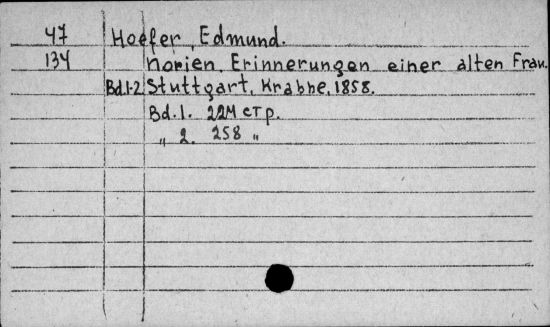 47 Hoefer, Edmund.
134 Norien. Erinnerungen einer alten Frau.
Bd.1-2 Stuttgart, Krabbe, 1858.
Bd.1. 224 стр.
„ 2. 258 „